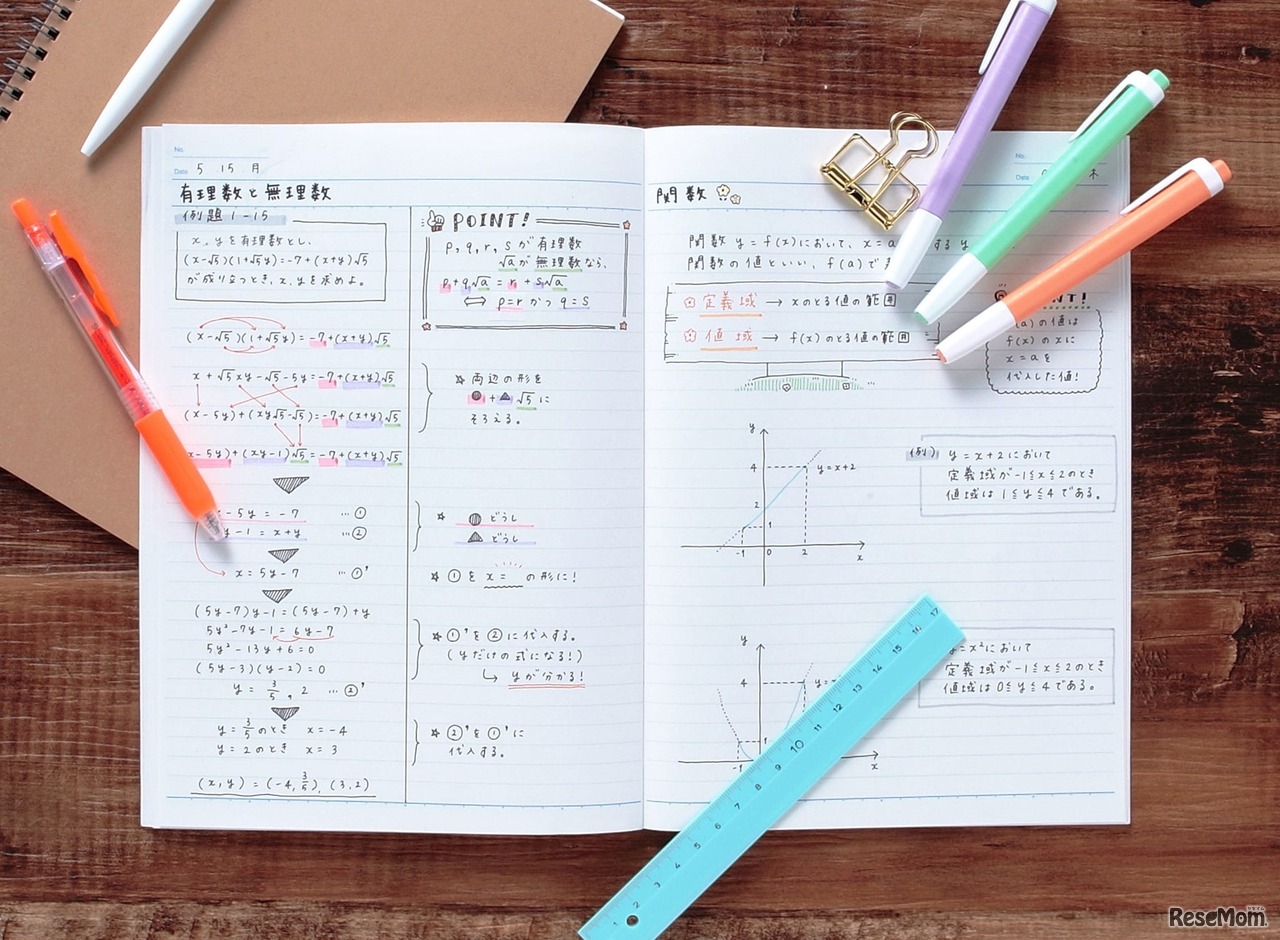 No.
Date 5 . 15 . 月
有理数と無理数
例題 1-15
x, yを有理数とし、
(x-√5)(1+√5y)=-7+(x+y)√5
が成り立つとき、x, yを求めよ。
(x-√5)(1+√5y)=-7+(x+y)√5
x+√5xy-√5-5y=-7+(x+y)√5
(x-5y)+(xy√5-√5)=-7+(x+y)√5
x-5y)+(xy-1)√5=-7+(x+y)√5
x-5y=-7 …①
y-1=x+y …②
x=5y-7 …①'
(5y-7)y-1=(5y-7)+y
5y²-7y-1=6y-7
5y²-13y+6=0
(5y-3)(y-2)=0
y=3/5, 2 …②'
y=3/5のとき x=-4
y=2のとき x=3
(x,y)=(-4,3/5), (3,2)
POINT!
p, q, r, sが有理数
√aが無理数なら、
p+q√a=r+s√a
⇔ p=rかつq=s
☆両辺の形を
●+▲√5に
そろえる。
☆ ●どうし
▲どうし
☆ ①を x= の形に!
☆ ①'を②に代入する。
(yだけの式になる!)
↳ yが分かる!
☆ ②'を①'に
代入する。
No.
Date 木
関数
関数 y=f(x)において、x=a する y
関数の値といい、f(a)で
定義域 → xのとる値の範囲
値域 → f(x)のとる値の範囲
NT!
(a)の値は
f(x)のxに
x=aを
代入した値!
y
4
y=x+2
2
1
-1 0 2 x
例) y=x+2において
定義域が-1≦x≦2のとき
値域は1≦y≦4である。
y
4
y=
1
-1
x
y=x²において
定義域が-1≦x≦2のとき
値域は0≦y≦4である。
1 2 3 4 5 6 7 8 9 10 11 12 13 14 15 16 17
ReseMom